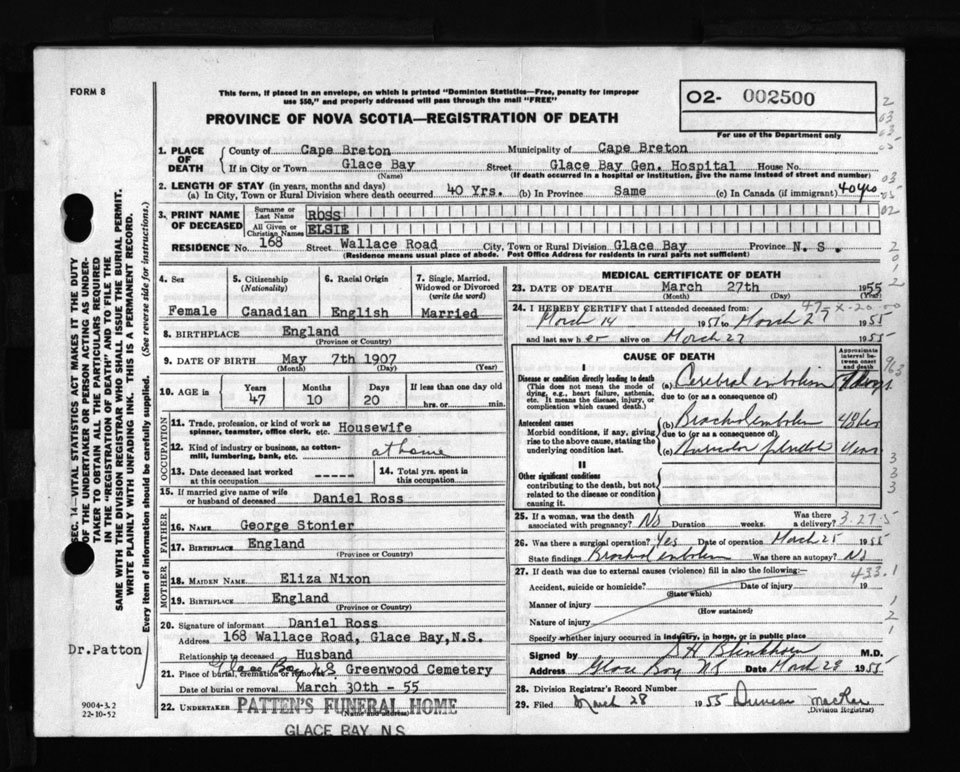 FORM 8
This form, if placed in an envelope, on which is printed "Dominion Statistics—Free, penalty for improper
use $50," and properly addressed will pass through the mail "FREE"
O2- 002500
For use of the Department only
PROVINCE OF NOVA SCOTIA—REGISTRATION OF DEATH
1. PLACE OF DEATH County of Cape Breton Municipality of Cape Breton
If in City or Town Glace Bay Street Glace Bay Gen. Hospital House No.
(Name) (If death occurred in a hospital or institution, give the name instead of street and number)
2. LENGTH OF STAY (in years, months and days)
(a) In City, Town or Rural Division where death occurred 40 Yrs. (b) In Province Same (c) In Canada (if immigrant) 40 yrs
3. PRINT NAME OF DECEASED Surname or Last Name ROSS
All Given or Christian Names ELSIE
RESIDENCE No. 168 Street Wallace Road City, Town or Rural Division Glace Bay Province N. S.
(Residence means usual place of abode. Post Office Address for residents in rural parts not sufficient)
4. Sex Female
5. Citizenship (Nationality) Canadian
6. Racial Origin English
7. Single, Married, Widowed or Divorced (write the word) Married
8. BIRTHPLACE England
(Province or Country)
9. DATE OF BIRTH May 7th 1907
(Month) (Day) (Year)
10. AGE in Years 47 Months 10 Days 20 If less than one day old
hrs. or min.
OCCUPATION
11. Trade, profession, or kind of work as spinner, teamster, office clerk, etc. Housewife
12. Kind of industry or business, as cotton-mill, lumbering, bank, etc. at home
13. Date deceased last worked at this occupation -----
14. Total yrs. spent in this occupation
15. If married give name of wife or husband of deceased Daniel Ross
FATHER
16. NAME George Stonier
17. BIRTHPLACE England
(Province or Country)
MOTHER
18. MAIDEN NAME Eliza Nixon
19. BIRTHPLACE England
(Province or Country)
20. Signature of informant Daniel Ross
Address 168 Wallace Road, Glace Bay,N.S.
Relationship to deceased Husband
21. Place of burial, cremation or removal Glace Bay N.S. Greenwood Cemetery
Date of burial or removal March 30th - 55
22. UNDERTAKER PATTEN'S FUNERAL HOME
(Name and address)
GLACE BAY, N.S.
MEDICAL CERTIFICATE OF DEATH
23. DATE OF DEATH March 27th 1955
(Month) (Day) (Year)
24. I HEREBY CERTIFY that I attended deceased from:
March 14 1955 to March 27 1955
and last saw her alive on March 27 1955
CAUSE OF DEATH
Approximate interval between onset and death
I
Disease or condition directly leading to death
(This does not mean the mode of dying, e.g., heart failure, asthenia, etc. It means the disease, injury, or complication which caused death.)
(a) Cerebral embolism
due to (or as a consequence of)
Antecedent causes
Morbid conditions, if any, giving rise to the above cause, stating the underlying condition last.
(b)
due to (or as a consequence of)
(c)
II
Other significant conditions
contributing to the death, but not related to the disease or condition causing it.
25. If a woman, was the death associated with pregnancy? No Duration weeks. Was there a delivery?
3.27.5
26. Was there surgical operation? Yes Date of operation March 25 1955
State findings Was there an autopsy? No
27. If death was due to external causes (violence) fill in also the following:—
433.1
Accident, suicide or homicide? Date of injury 19
(State which)
Manner of injury
(How sustained)
Nature of injury
Specify whether injury occurred in industry, in home, or in public place
Signed by M.D.
Address Glace Bay NS Date March 28 1955
28. Division Registrar's Record Number
29. Filed March 28 1955 Duncan MacRae
(Division Registrar)
SEC. 14—VITAL STATISTICS ACT MAKES IT THE DUTY
OF THE UNDERTAKER OR PERSON ACTING AS UNDER-
TAKER TO OBTAIN ALL THE PARTICULARS REQUIRED
IN THE "REGISTRATION OF DEATH" AND TO FILE THE
SAME WITH THE DIVISION REGISTRAR WHO SHALL ISSUE THE BURIAL PERMIT.
WRITE PLAINLY WITH UNFADING INK. THIS IS A PERMANENT RECORD.
Every item of information should be carefully supplied. (See reverse side for instructions.)
Dr.Patton
9004-3.2
22-10-52